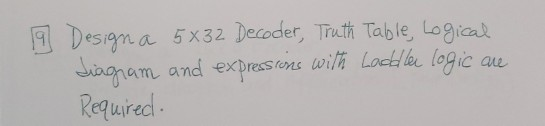 9 Design a 5×32 Decoder, Truth Table, Logical
diagram and expressions with Laddler logic are
Required.